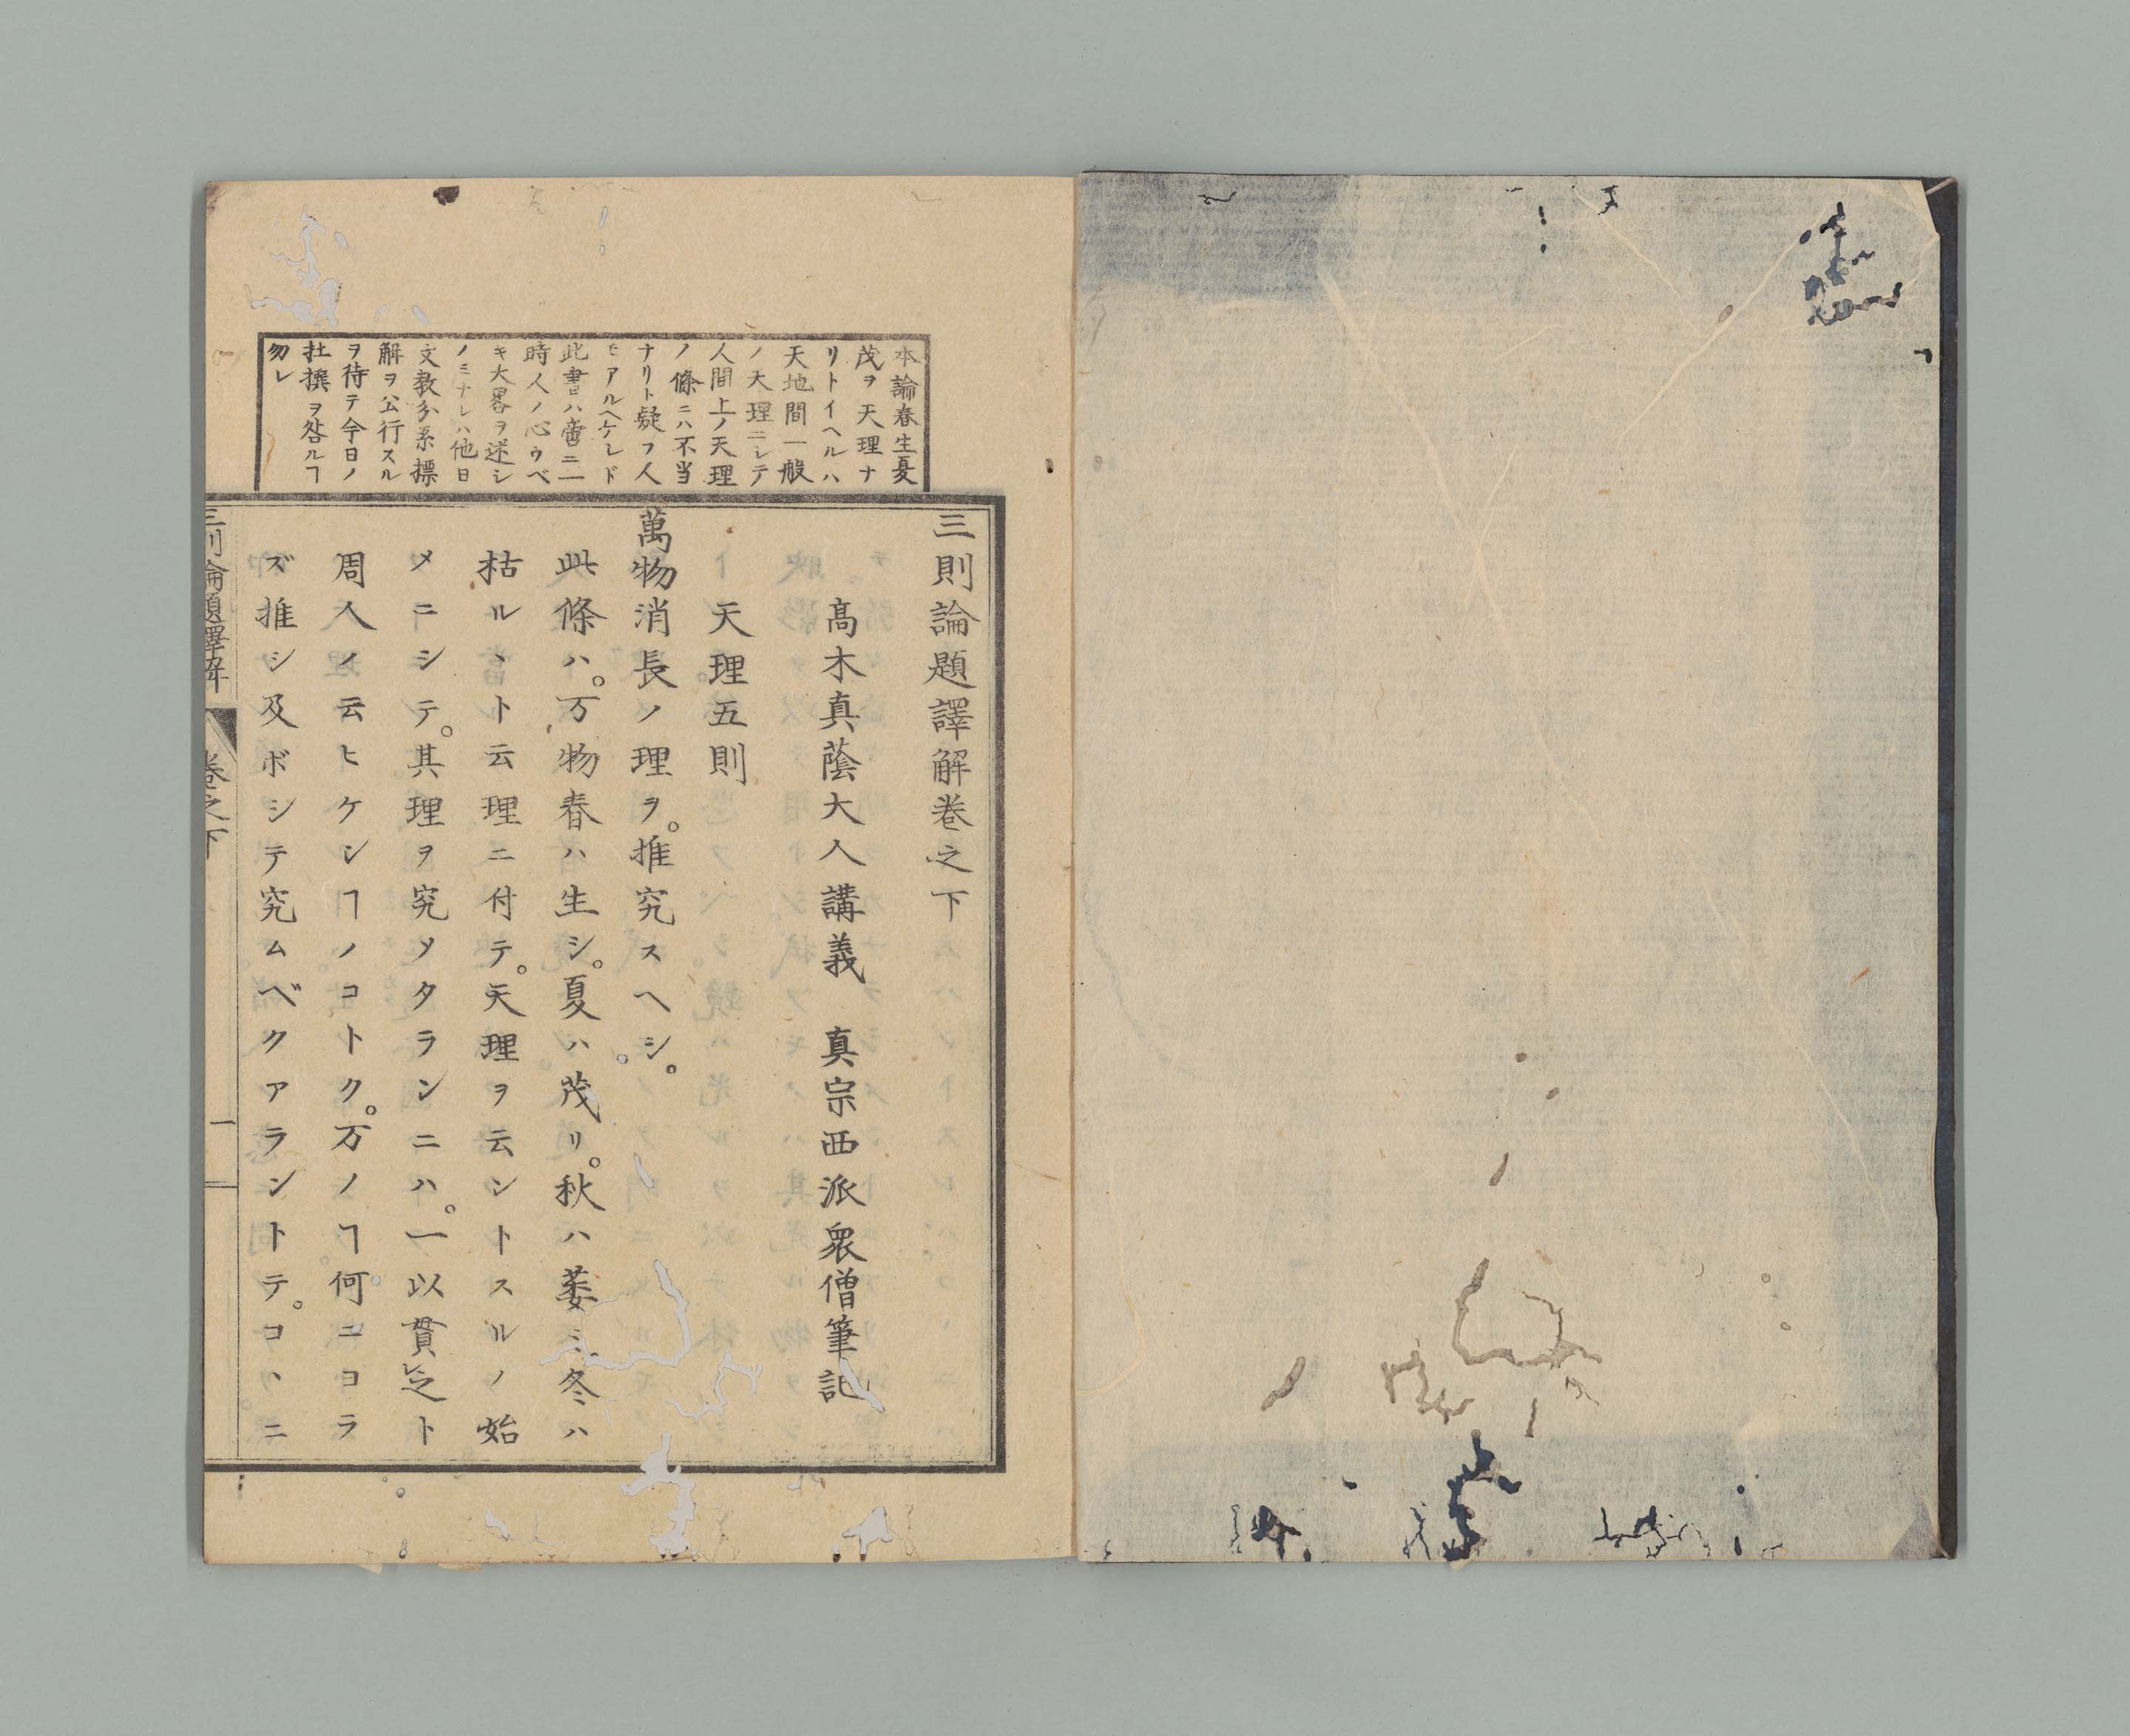 本論春生夏
茂ヲ天理ナ
リトイヘルハ
天地間一般
ノ天理ニシテ
人間上ノ天理
ノ條ニハ不当
ナリト疑フ人
モアルヘケレド
此書ハ啻ニ一
時人ノ心ウベ
キ大畧ヲ述シ
ノミナレハ他日
文教分系標
解ヲ公行スル
ヲ待テ今日ノ
杜撰ヲ咎ルヿ
勿レ
三則論題譯解巻之下
髙木真蔭大人講義　真宗西派衆僧筆記
天理五則
萬物消長ノ理ヲ。推究スヘシ。
此條ハ。万物春ハ生シ。夏ハ茂リ。秋ハ萎ミ冬ハ
枯ルヽト云理ニ付テ。天理ヲ云ントスルノ始
メニシテ。其理ヲ究メタランニハ。一以貫㆑之ト
周人ノ云ヒケンヿノコトク。万ノヿ何ニヨラ
ズ推シ及ボシテ究ムベクアラントテ。コヽニ
三則論題譯解　巻之下　一